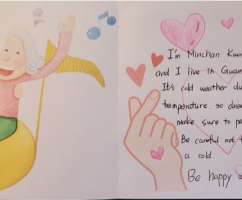 I'm Minchan
and I live in
It's cold weather
temperature, so
make sure to
Be careful not
a cold.
Be happy